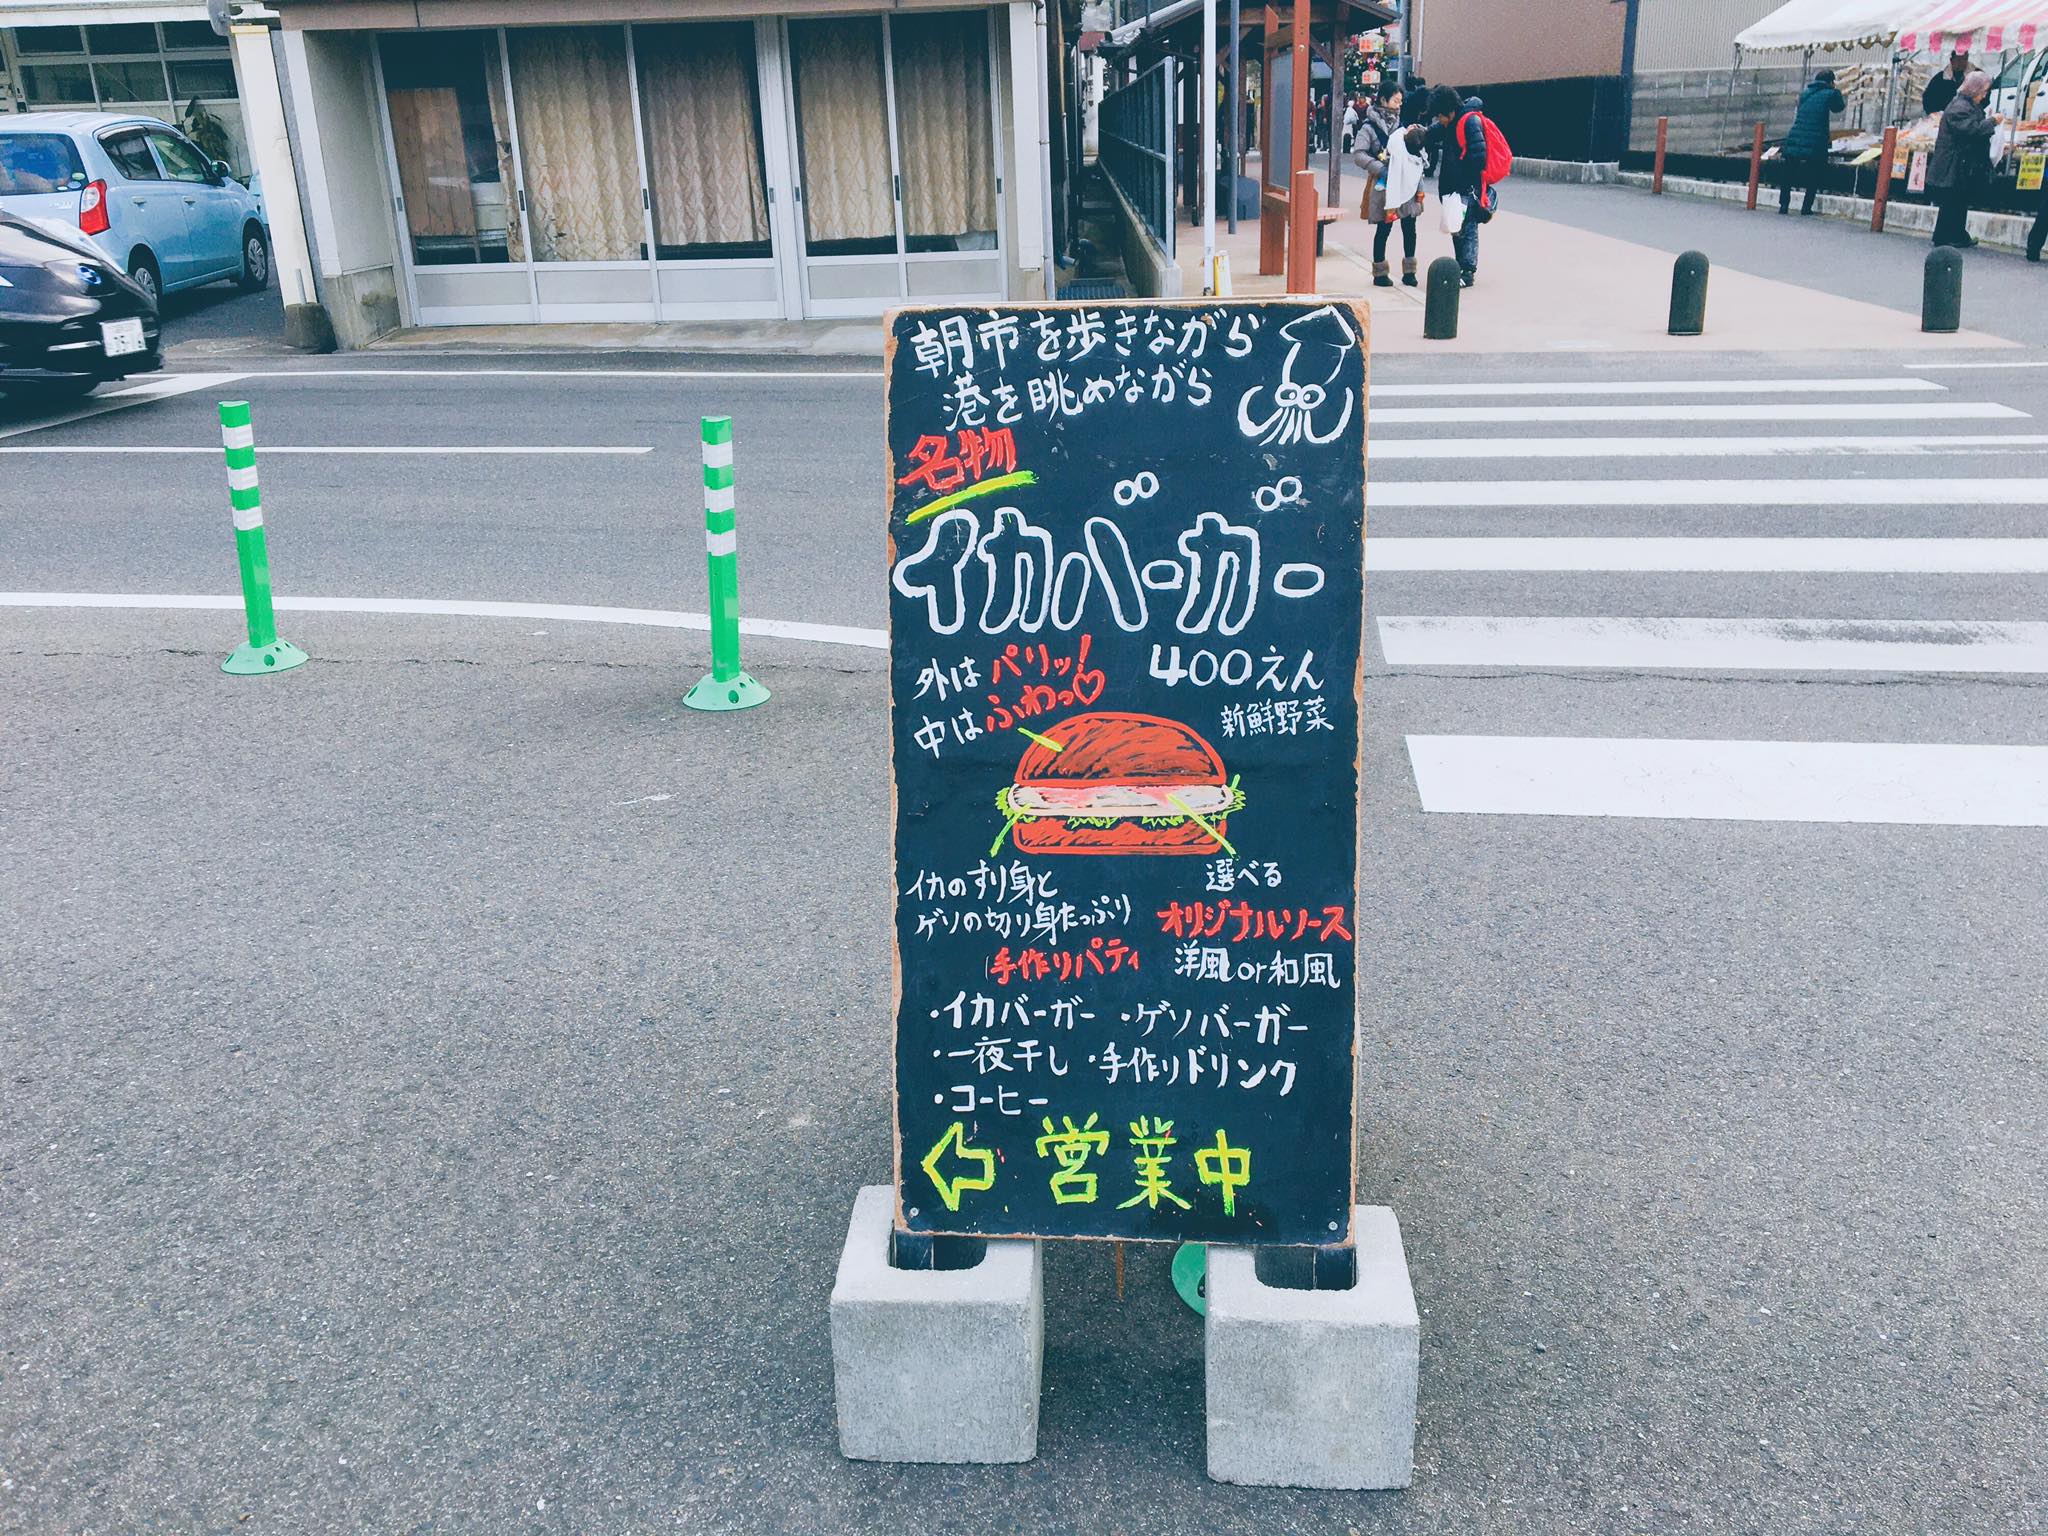 朝市を歩きながら
港を眺めながら
名物
イカバーガー
外はパリッ!
中はふわっ♡
400えん
新鮮野菜
イカのすり身と
ゲソの切り身たっぷり
手作りパティ
選べる
オリジナルソース
洋風or和風
・イカバーガー ・ゲソバーガー
・一夜干し ・手作りドリンク
・コーヒー
営業中